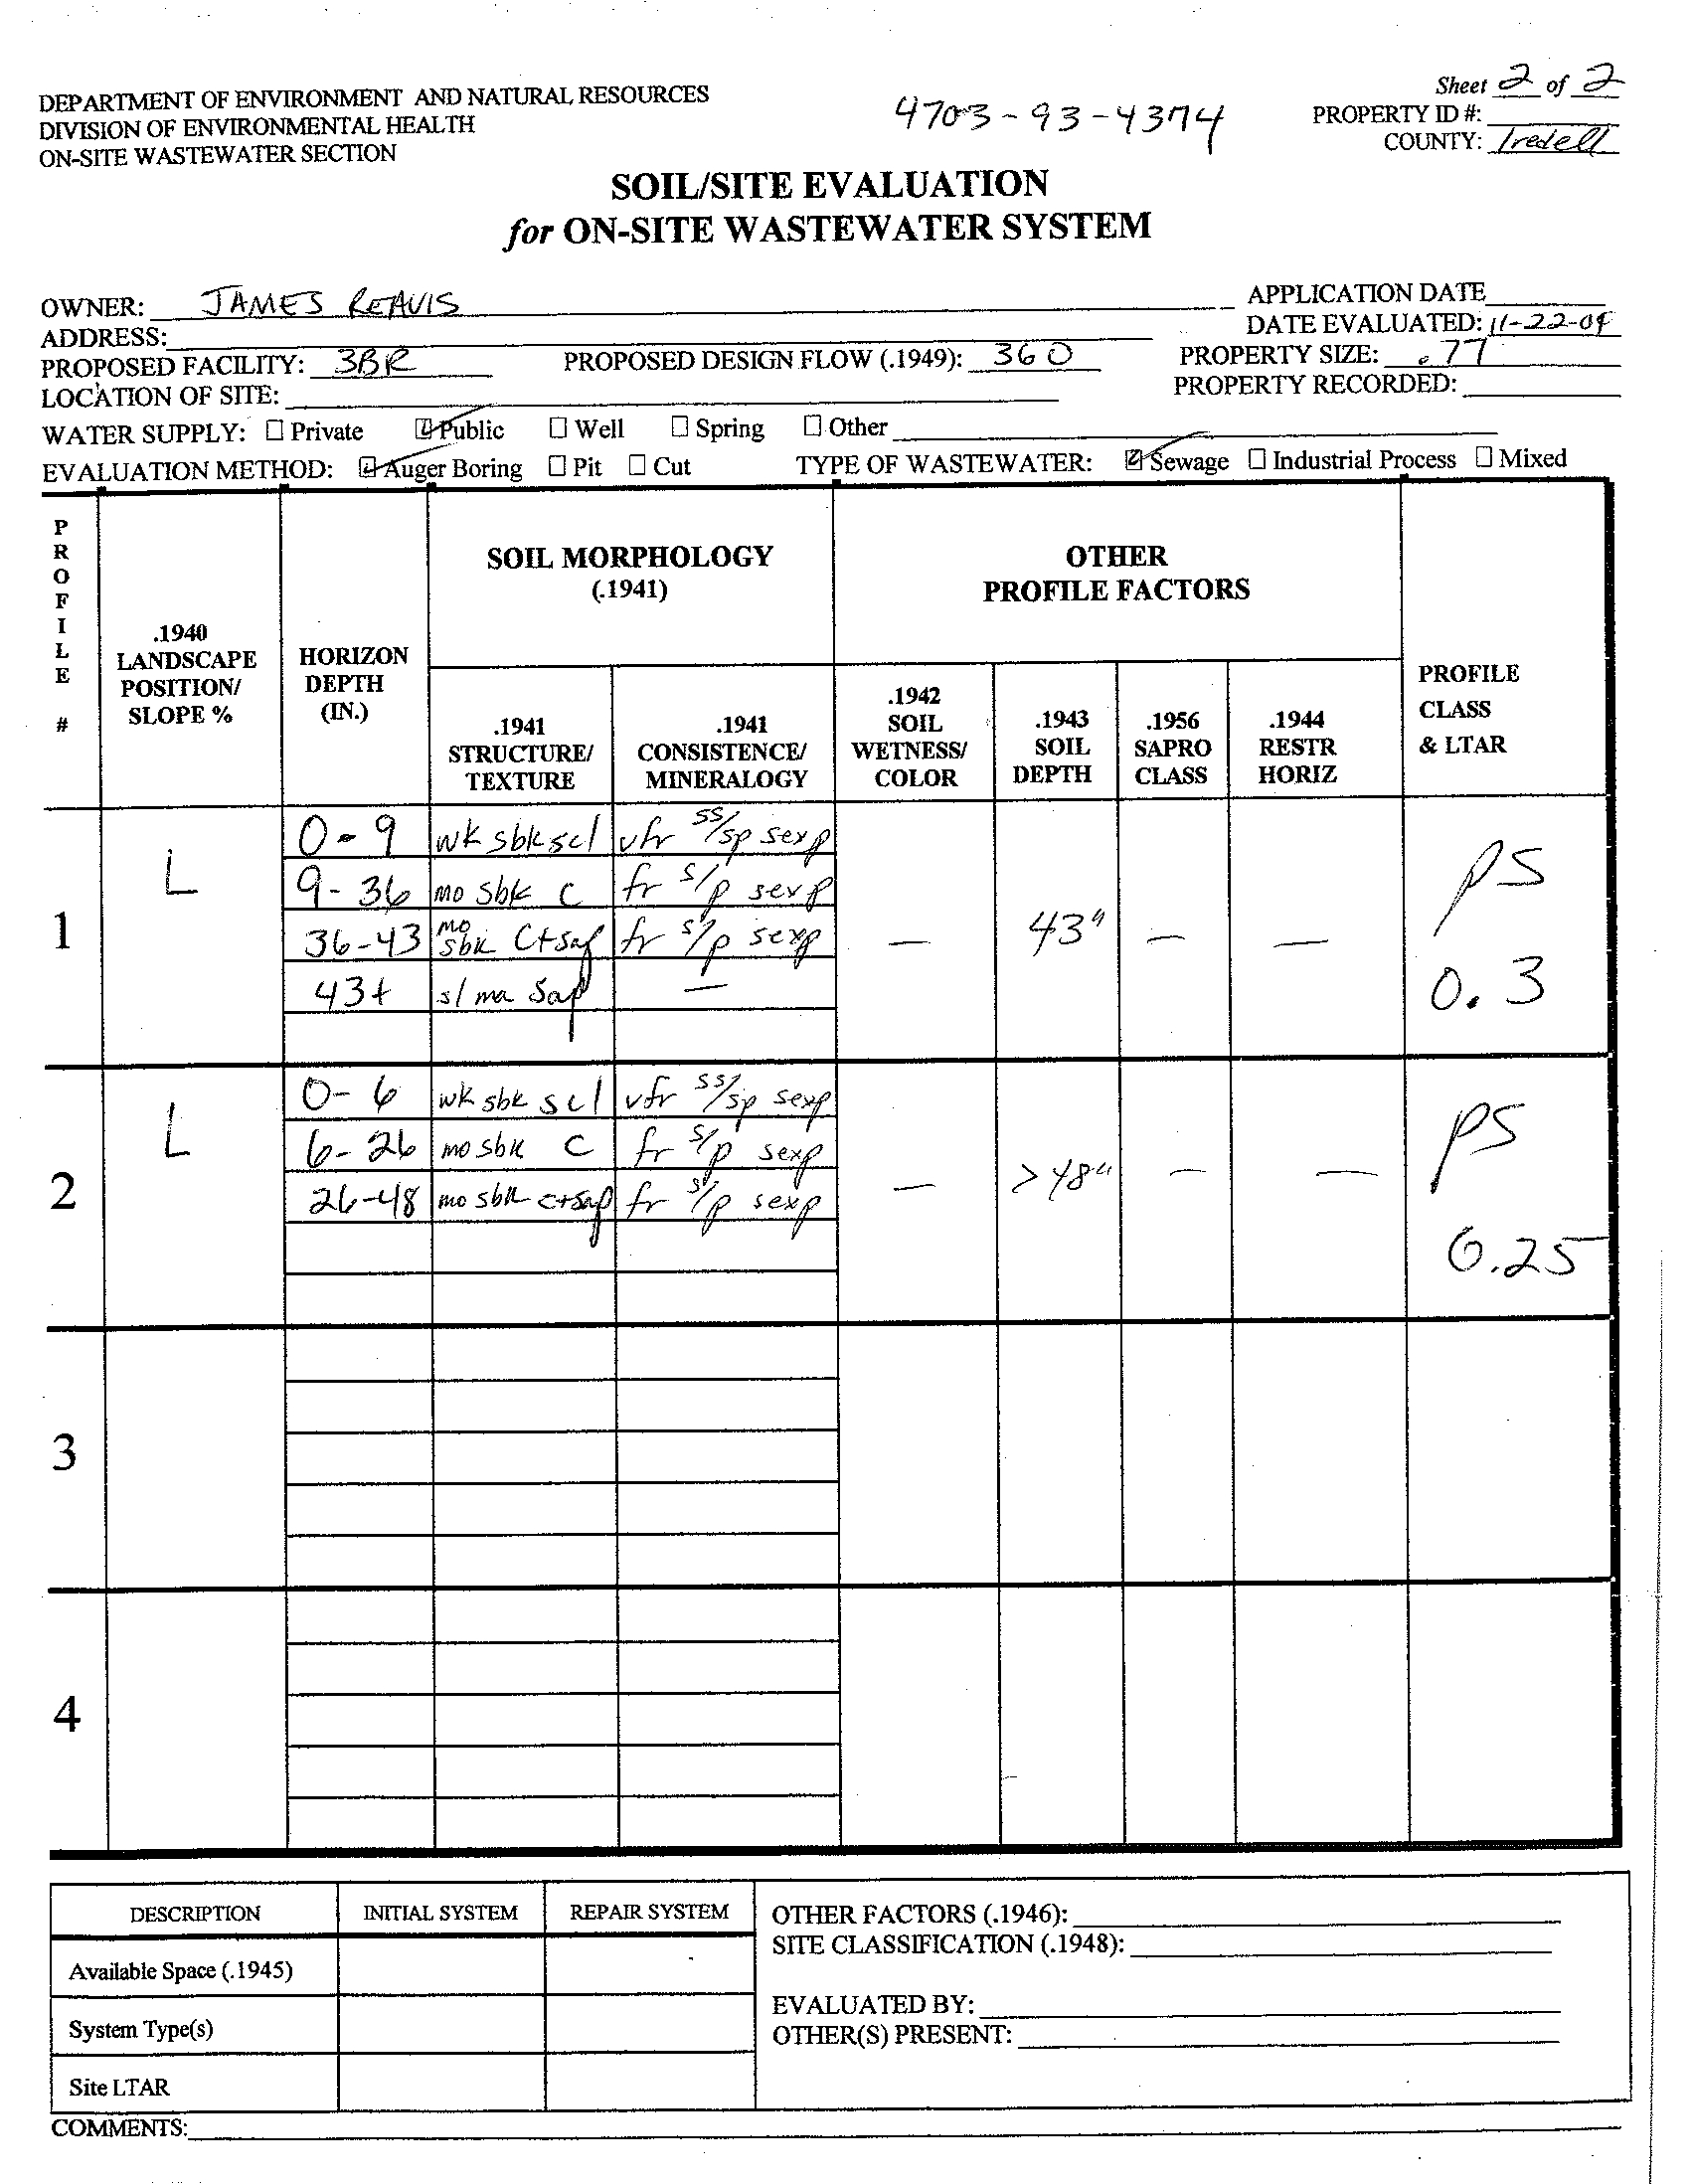 Sheet 2 of 2
DEPARTMENT OF ENVIRONMENT AND NATURAL RESOURCES
4703-93-4374
PROPERTY ID #:
DIVISION OF ENVIRONMENTAL HEALTH
COUNTY: Iredell
ON-SITE WASTEWATER SECTION
SOIL/SITE EVALUATION
for ON-SITE WASTEWATER SYSTEM
OWNER: JAMES REAVIS
APPLICATION DATE
ADDRESS:
DATE EVALUATED: 11-22-04
PROPOSED FACILITY: 3BR PROPOSED DESIGN FLOW (.1949): 360 PROPERTY SIZE: .77
LOCATION OF SITE: PROPERTY RECORDED:
WATER SUPPLY: ☐ Private ☑ Public ☐ Well ☐ Spring ☐ Other
EVALUATION METHOD: ☑ Auger Boring ☐ Pit ☐ Cut TYPE OF WASTEWATER: ☑ Sewage ☐ Industrial Process ☐ Mixed
PROFILE #
.1940 LANDSCAPE POSITION/ SLOPE %
HORIZON DEPTH (IN.)
SOIL MORPHOLOGY (.1941)
.1941 STRUCTURE/ TEXTURE
.1941 CONSISTENCE/ MINERALOGY
OTHER PROFILE FACTORS
.1942 SOIL WETNESS/ COLOR
.1943 SOIL DEPTH
.1956 SAPRO CLASS
.1944 RESTR HORIZ
PROFILE CLASS & LTAR
1 L
0-9 wk sbk scl vfr ss/sp sexp
9-36 mo sbk c fr s/p sexp
36-43 mo sbk C+sap fr s/p sexp
43+ sl ma sap —
— 43" — —
PS 0.3
2 L
0-6 wk sbk scl vfr ss/sp sexp
6-26 mo sbk c fr s/p sexp
26-48 mo sbk c+sap fr s/p sexp
— >48" — —
PS 0.25
3
4
DESCRIPTION INITIAL SYSTEM REPAIR SYSTEM
Available Space (.1945)
System Type(s)
Site LTAR
OTHER FACTORS (.1946):
SITE CLASSIFICATION (.1948):
EVALUATED BY:
OTHER(S) PRESENT:
COMMENTS: